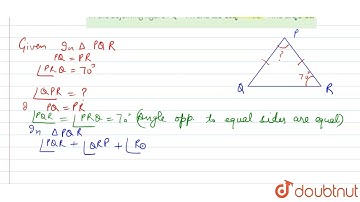 Given In Δ PQR
PQ = PR
∠PRQ = 70°
∠QPR = ?
PQ = PR
∠PQR = ∠PRQ = 70° (angle opp. to equal sides are equal)
In Δ PQR
∠PQR + ∠QRP + ∠R
P
?
70°
Q
R
doubtnut